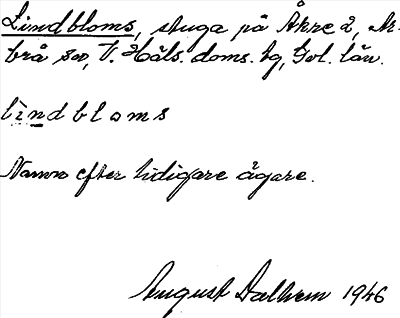 Lindbloms, stuga på Åkre 2, Ar-
brå sn, V. Häls. doms. tg, Gvl. län.
lindbloms
Namn efter tidigare ägare.
August Dalhem 1946